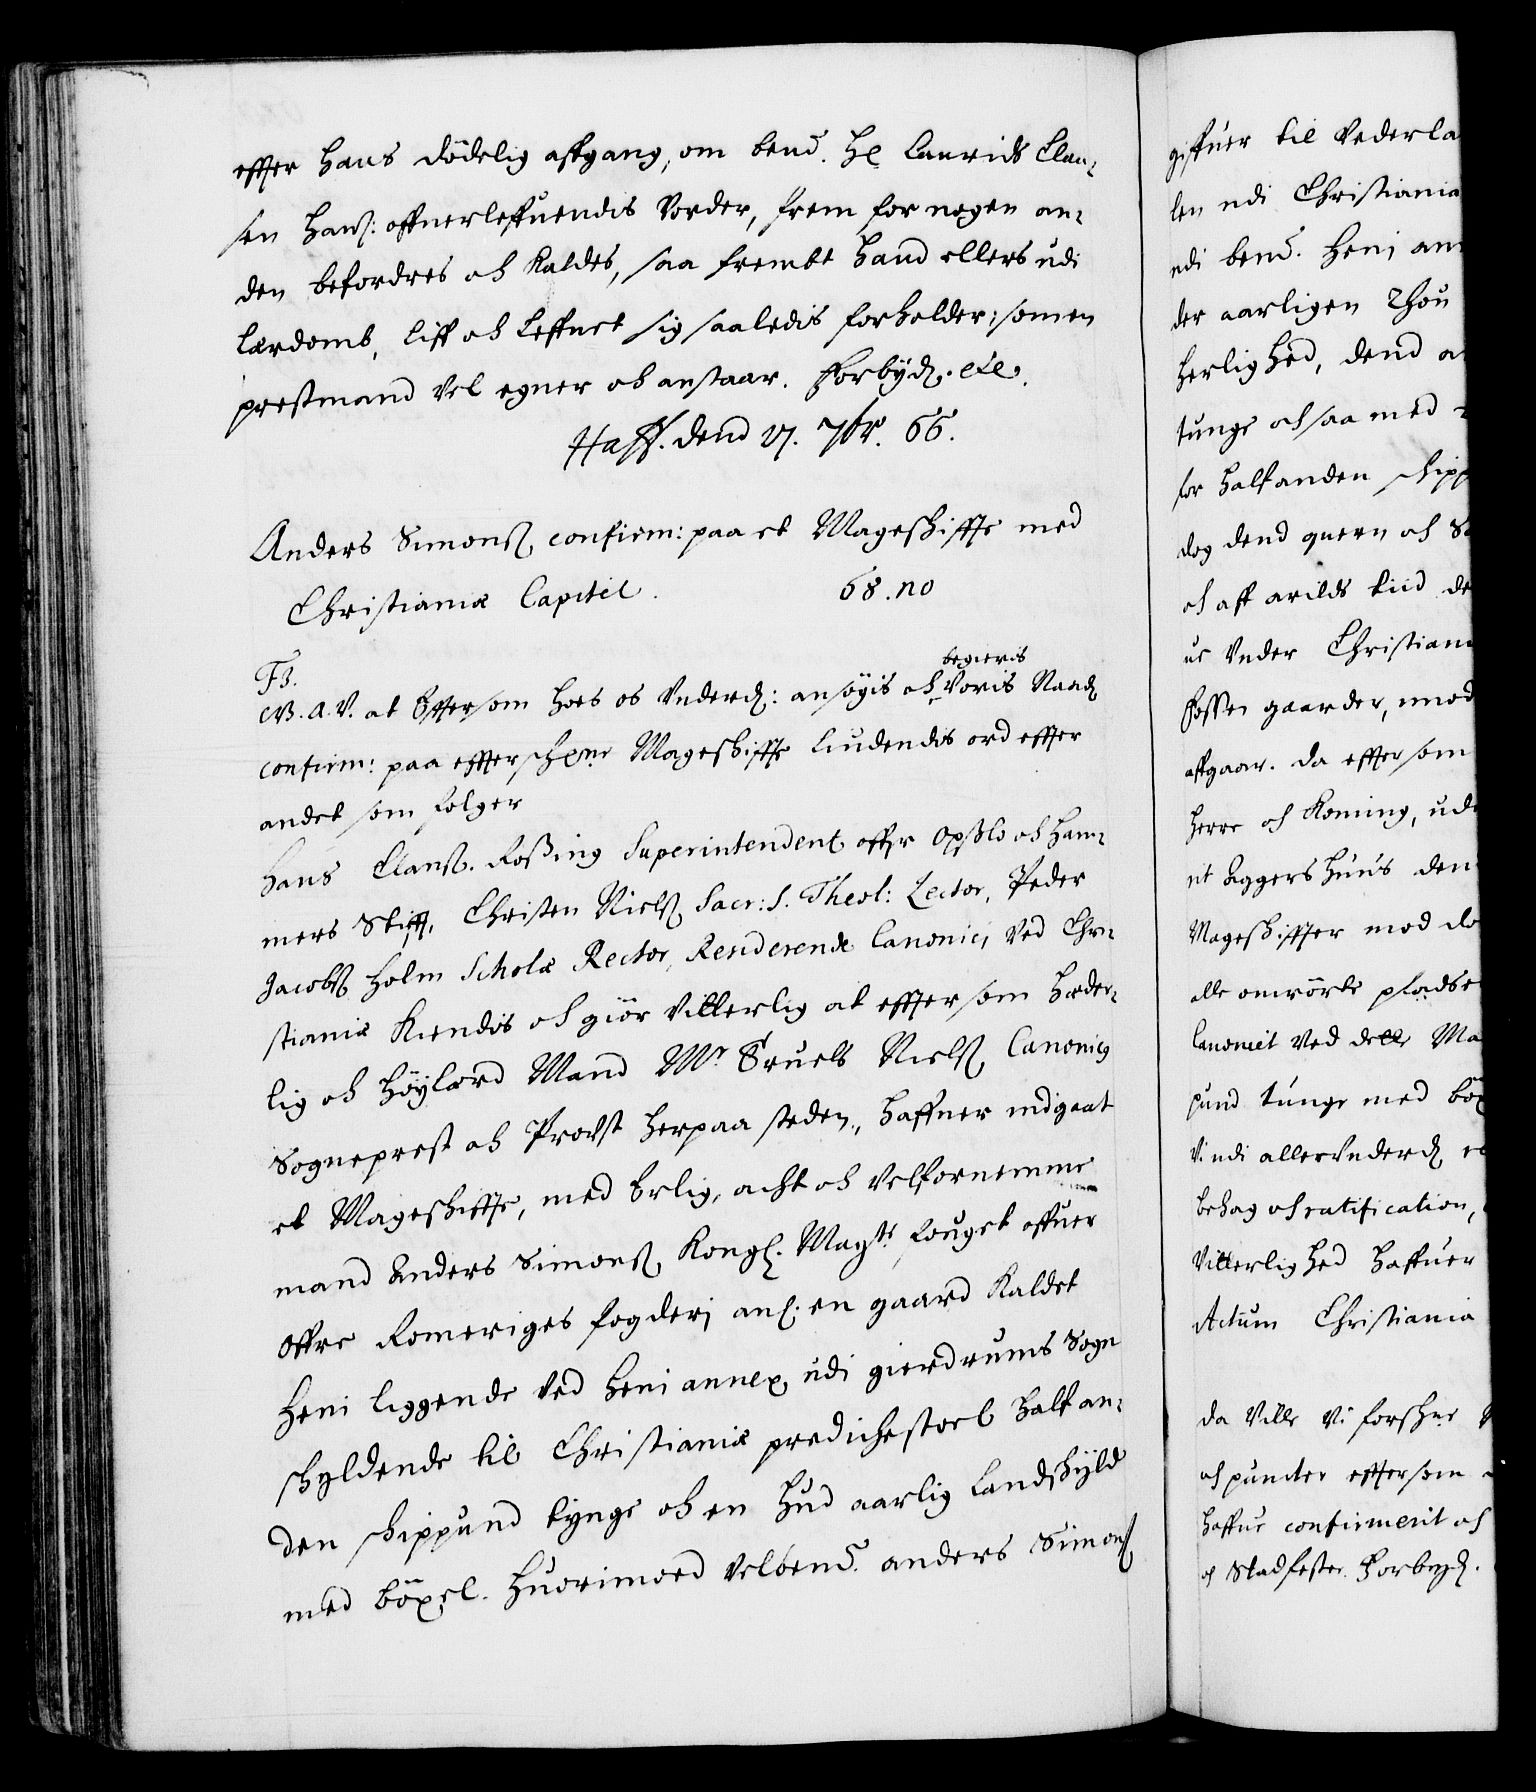 effter hans dödelig affgang, om bemd. Hr Laurids Clau-
sen hans: offuerleffuendis vorder, frem for nogen an-
den befordres och kaldes, saa frembt hand ellers udi
lærdomb, liff och leffnet sig saaledis forholder, som en
prestmand vel egner och anstaar. Forbyd. etc.
Haff. dend 17. 7br. 66.
Anders Simonß. confirm: paa et Mageskiffte med
Christianiæ Capitel. 68. no
F3.
G.A.V. at Efftersom hoes os underd: ansøgis och begieris voris Naad
confirm: paa effterschrne Mageskiffte liudendis ord effter
andet som følger
Hans Clauß. Roßing Superintendent offr Opßlo och Ham-
mers Stifft, Christen Nielß. Sacr: S. Theol: Lector, Peder
Jacobß. Holm Scholæ Rector, Residerende Canonici ved Chri-
stianiæ Kiendis och giör vitterlig at efftersom Hæder-
lig och Höylærd Mand Mr. Truels Nielß. Canonicus
Sogneprest och Provst herpaa steden, haffuer indgaat
et Mageskiffte, med Erlig, acht och velfornemme
mand Anders Simonß. Kongl. Mayts fouget offuer
Offre Romeriges fogderj anl. en gaard kaldet
Heni liggende ved Heni annex, udi gierdrums Sogn
skyldende til Christianiæ predichestoel halfan-
den skippund tynge och en hud aarlig landskyld
med böxel. Huorimoed velbemd. anders Simonß.
giffuer til vederla
len udi Christiania
udi bemd. Heni an
der aarligen
herlighed, dend
tunge och saa med
for halfanden skipp
dog dend quern och
och aff arilds tiid de
ue under Christian
fosser gaarder, imod
affgaar. da efftersom
Herre och Koning, ud
it Aggershuus den
Mageskiffter mod
alle omrörte pladse
Canonicit ved dette Ma
pund tunge med böx
Vi udi allerunderd
behag och ratification,
Vitterlighed haffuer
Actum Christiania
da ville vi forskne
och puncter efftersom
haffue confirmerit och
och Stadfester. Forbyd.